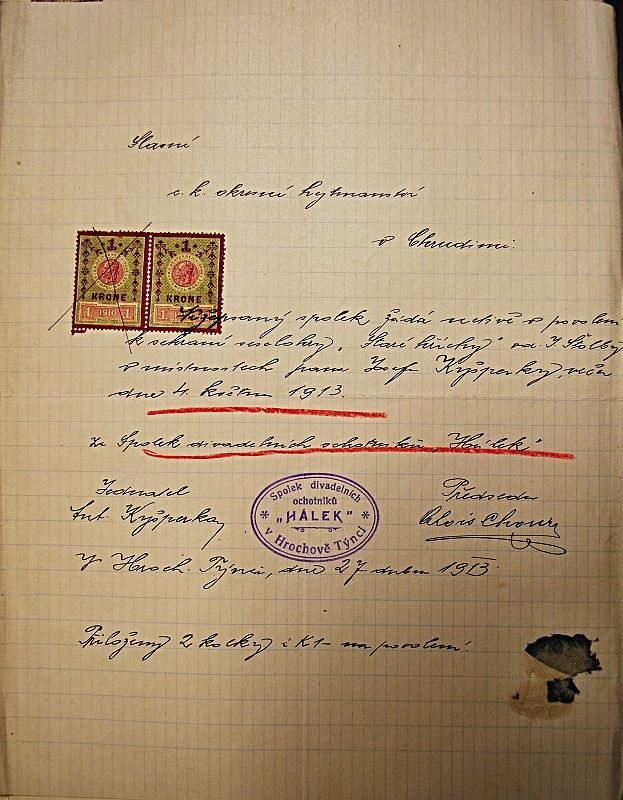 Slavné
c. k. okresní hejtmanství
v Chrudimi.
1 1
KRONE KRONE
1 1910 1 1
Nížepsaný spolek žádá uctivě o povolení
k sehraní veselohry „Staré hříchy" od J. Štolby
v místnostech pana Josefa Kyšperky, večer
dne 4. května 1913.
Za Spolek divadelních ochotníků „Hálek"
Jednatel
Ant. Kyšperka
Spolek divadelních
ochotníků
* „HÁLEK" *
v Hrochově Týnci
Předseda
Alois Chour
V Hroch. Týnci, dne 27 dubna 1913.
Přiloženy 2 kolky i K1- na povolení.